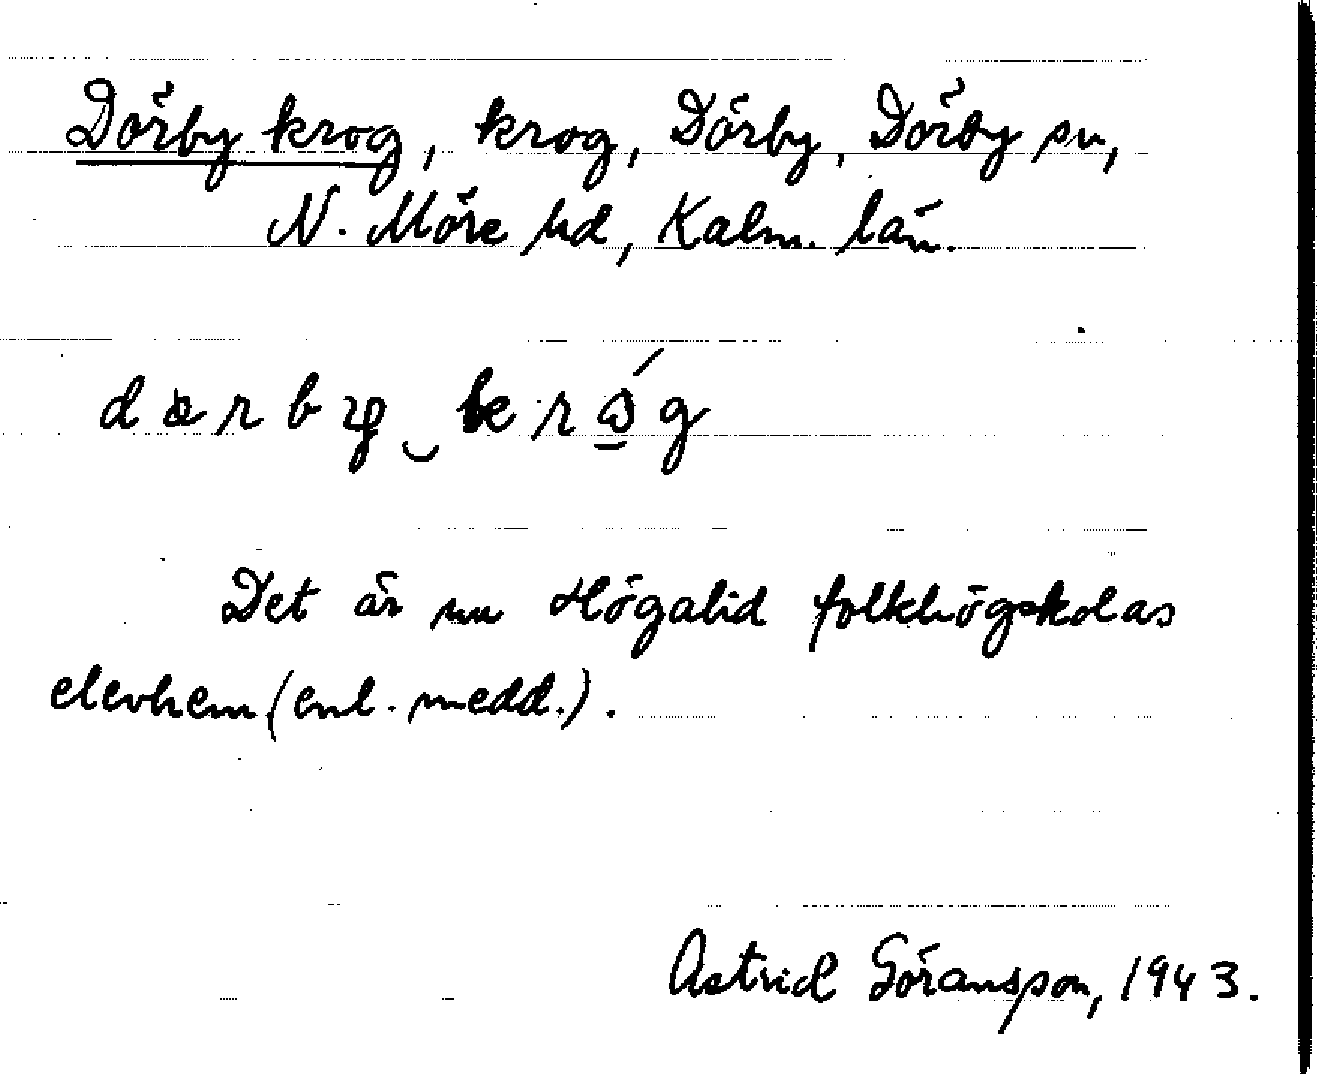 Dörby krog, krog, Dörby, Dörby sn,
N. Möre hd, Kalm. län.
Det är nu Högalid folkhögskolas
elevhem (enl. medd.).
Astrid Göransson, 1943.